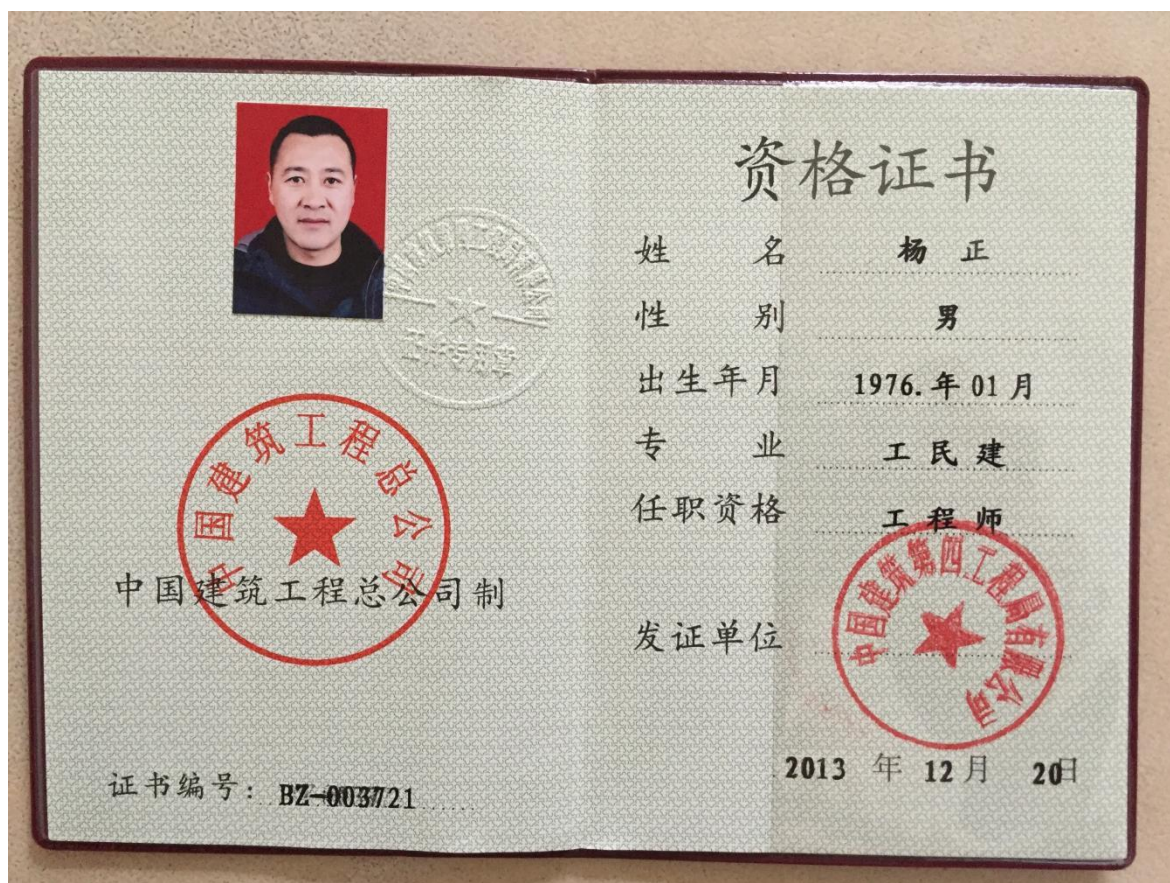 中国建筑工程总公司
中国建筑工程总公司制
证书编号: BZ-003721
资格证书
姓名 杨正
性别 男
出生年月 1976.年01月
专业 工民建
任职资格 工程师
发证单位
中国建筑第四工程局有限公司
2013年12月20日